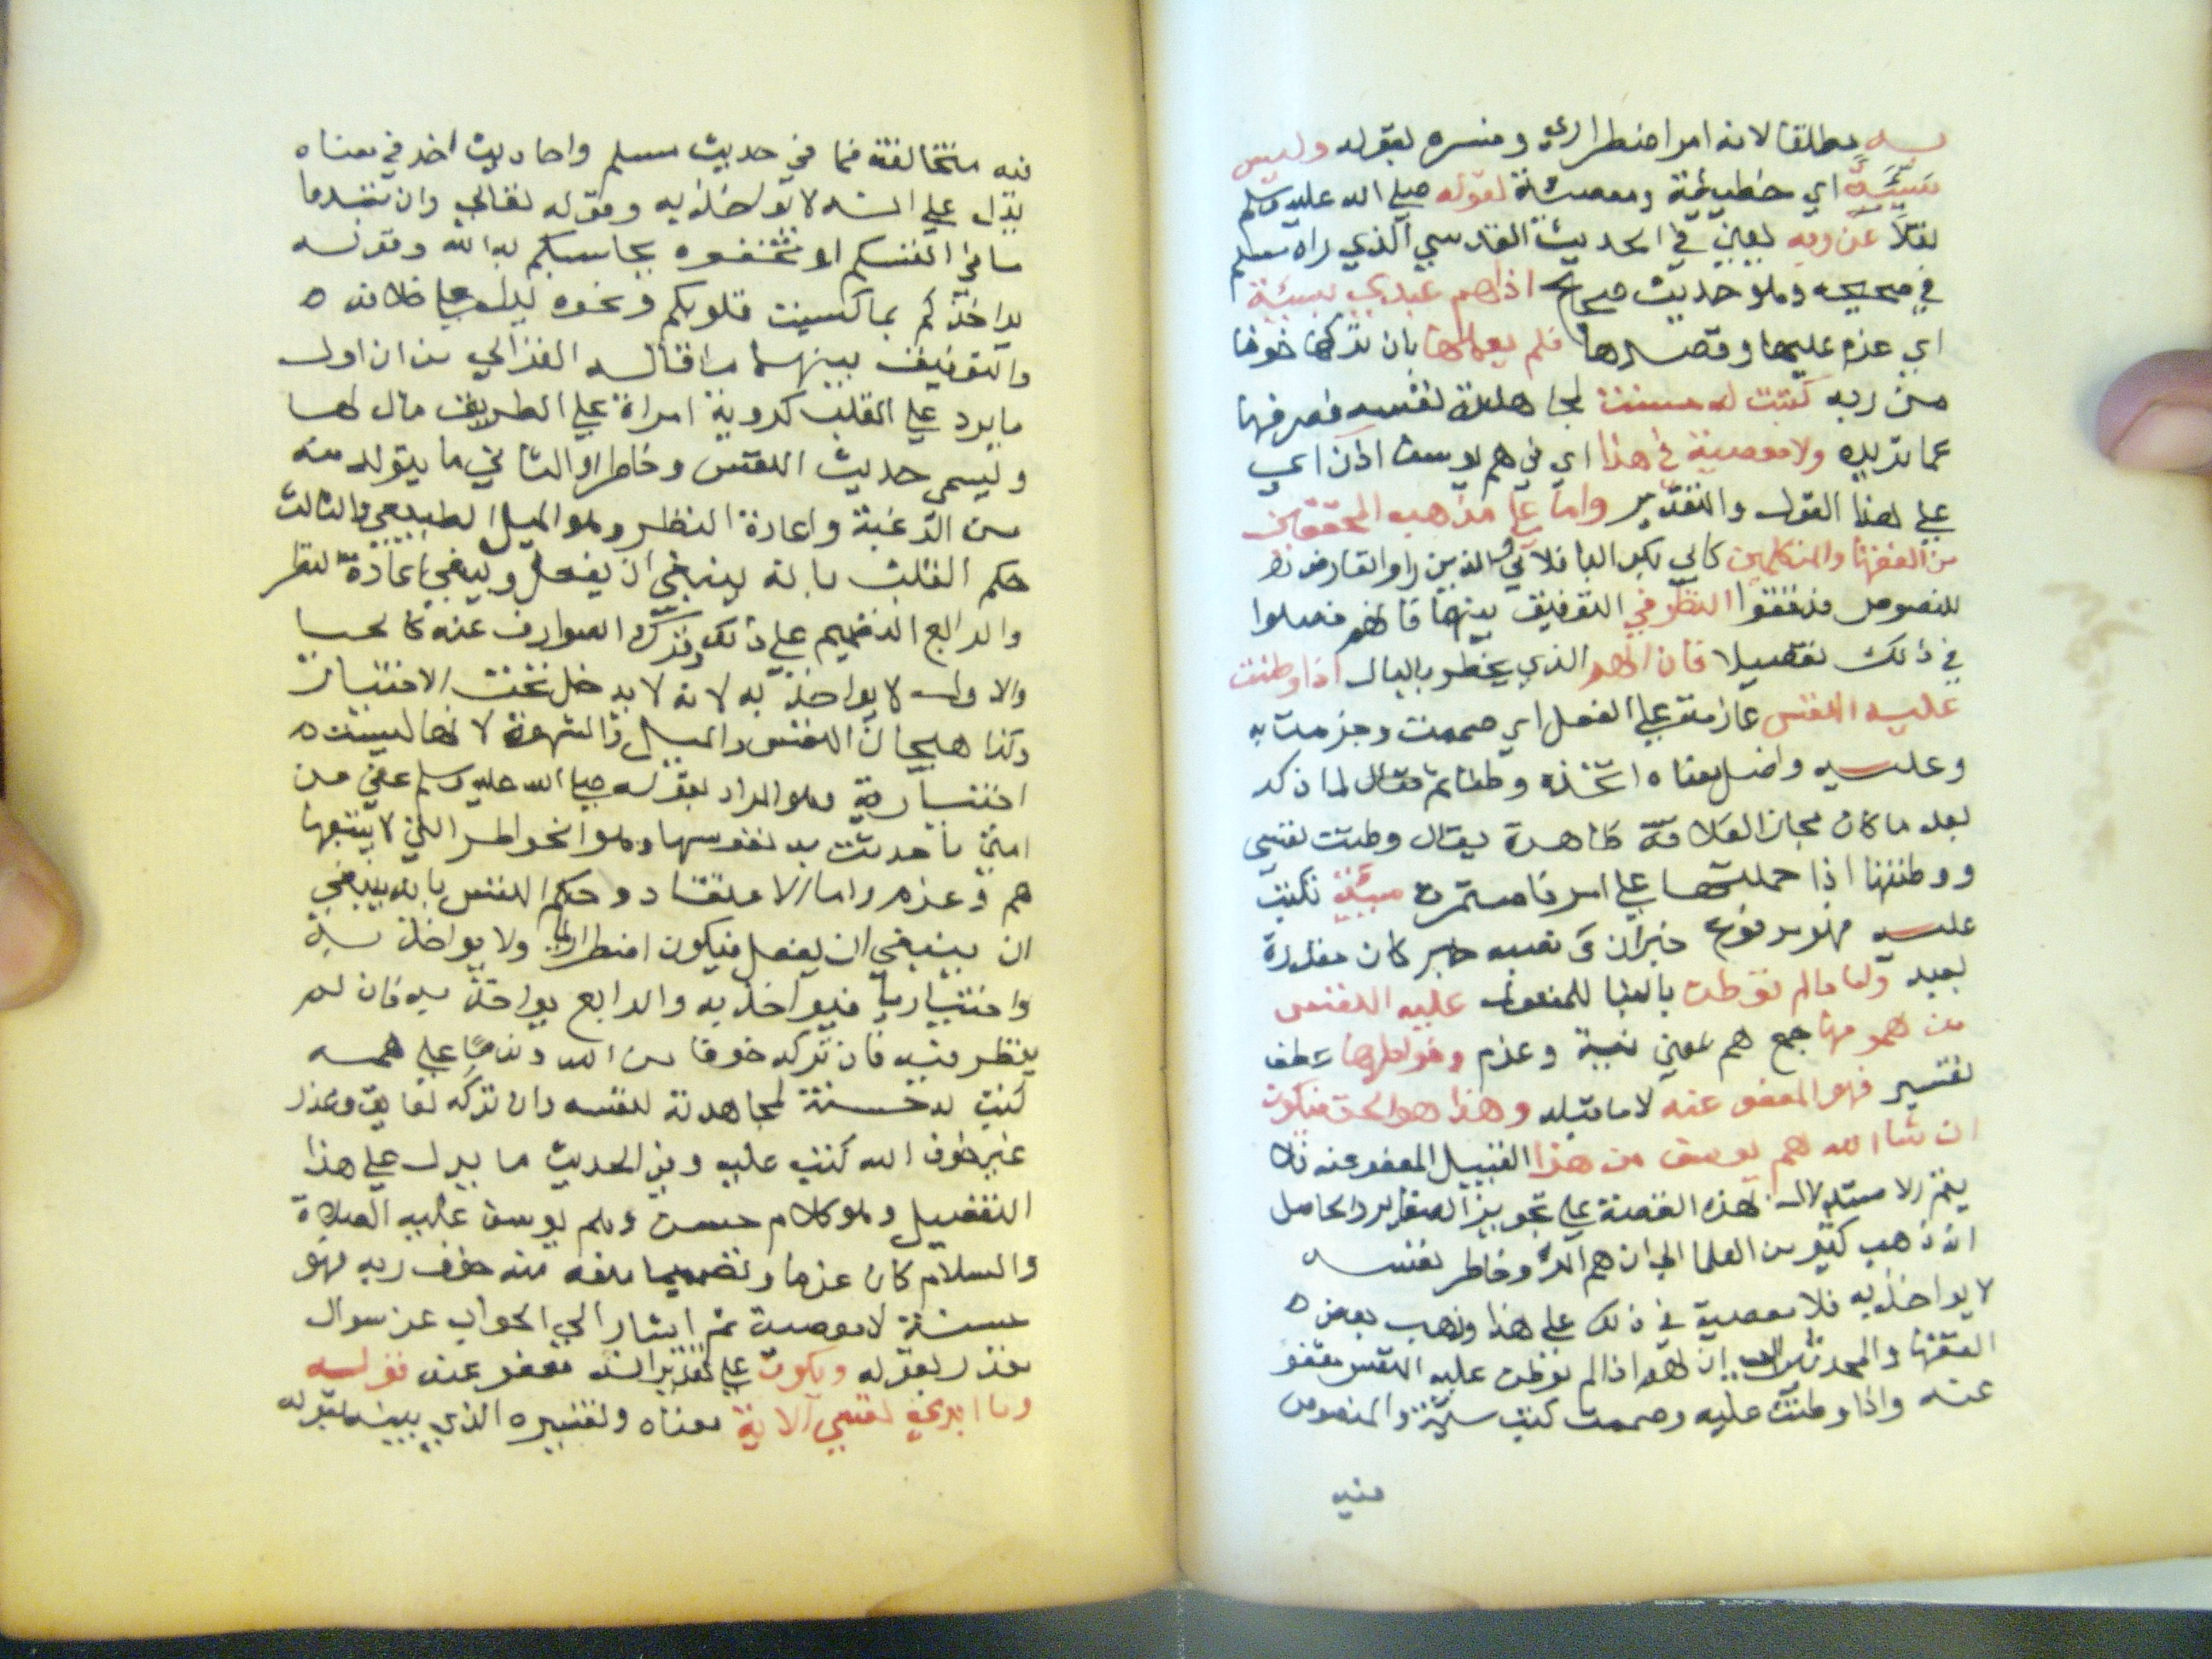 به مطلقا لانه امر اضطراري وفسره بقوله وليس
سيئة اي خطيئة ومعصية لقوله صلي الله عليه وسلم
نقلا عن ربه يعني في الحديث القدسي الذي راه مسلم
في صحيحه وهو حديث صحيح اذا هم عبدي بسيئة
اي عزم عليها وقصدها فلم يعملها بان تركها خوفا
من ربه كتبت له حسنة لمجاهدة نفسه فصرفها
عما تريده ولا معصية في هذا اي في هم يوسف اذن اي
علي هذا القول والتقدير واما علي مذهب المحققين
من الفقها والمتكلمين كابي بكر الباقلاني والذين راوا تعارض
النصوص فدققوا النظر في التوفيق بينها فانهم فصلوا
في ذلك تفصيلا فان الهم الذي يخطر بالبال اذا وطنت
عليه النفس عازمة علي الفعل اي صممت وجزمت به
وعليه واصل معناه اتخذه وطنا ثم يقال لما ذكر
بعد ما كان مجاز العلاقة ظاهرة يقال وطنت نفسي
ووطنتها اذا حملتها علي امر فاستمرت سيئة تكتب
عليه فهو مرفوع خبر ان ونصبه خبر كان مقدرة
بعيد واما ما لم توطن بالبنا للمفعول عليه النفس
من همومها جمع هم بمعني نية وعزم وخواطرها عطف
تفسير فهو المعفو عنه لا ما قبله وهذا هو الحق فيكون
ان شا الله هم يوسف من هذا القبيل المعفو عنه فلا
يتم الاستدلال بهذه القصة علي تجويز الصغاير والحاصل
انه ذهب كثير من العلما الي ان هم المرء وخاطر نفسه
لا يواخذ به فلا معصية في ذلك علي هذا وذهب بعض
الفقها والمحدثين الي ان الهم اذا لم توطن عليه النفس معفو
عنه واذا وطنت عليه وصممت كتبت سيئة والنصوص
فيه
فيه متخالفة فما في حديث مسلم واحاديث اخر في معناه
يدل علي انه لا يواخذ به وقوله تعالي وان تبدوا ما
ما في انفسكم او تخفوه يحاسبكم به الله وقوله
يواخذكم بما كسبت قلوبكم ونحوه يدل علي خلافه
والتوفيق بينهما ما قاله الغزالي من ان اول
ما يرد علي القلب كروية امراة علي الطريق مال لها
ويسمي حديث النفس وخاطرا والثاني ما يتولد منه
من الرغبة واعادة النظر وهو الميل الطبيعي والثالث
حكم القلب بانه ينبغي ان يفعل وينبغي اعادة النظر
والرابع التصميم علي ذلك وترك الصوارف عنه كالحيا
والاول لا يواخذ به لانه لا يدخل تحت الاختيار
وكذا هيجان النفس والميل والشهوة لانها ليست
اختيارية وهو المراد بقوله صلي الله عليه وسلم عفي عن
امتي ما حدثت به نفوسها وهو الخواطر التي لا يتبعها
هم وعزم واما الاعتقاد وحكم النفس بانه ينبغي
ان ينبغي ان يفعل فيكون اضطراريا ولا يواخذ به
واختياريا فيواخذ به والرابع يواخذ به فان لم
ينظر فيه فان تركه خوفا من الله وندما علي همه
كتب له حسنة لمجاهدته لنفسه وان تركه لعايق وعذر
غير خوف الله كتب عليه وفي الحديث ما يدل علي هذا
التفصيل وهو كلام حسن وهم يوسف عليه الصلاة
والسلام كان عزما وتصميما منعه منه خوف ربه فهو
حسنة لا معصية ثم اشار الي الجواب عن سوال
مقدر بقوله ويكون علي تقدير انه معفو عنه قوله
وما ابري نفسي الاية معناه وتفسيره الذي يبينه بقوله